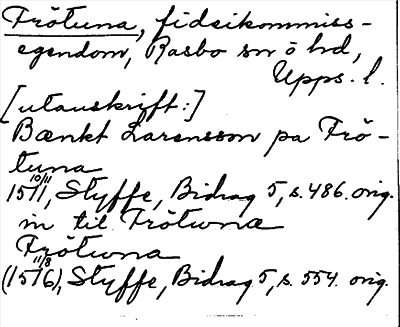 Frötuna, fideikommiss-
egendom, Rasbo sn ö hd,
Upps. l.
[utanskrift:]
Bænkt Larensson pa Frö-
tuna
10/11
1511, Styffe, Bidrag 5, s. 486. orig.
in til Frötwnæ
Frötwna
11/8
(1516), Styffe, Bidrag 5, s. 554. orig.